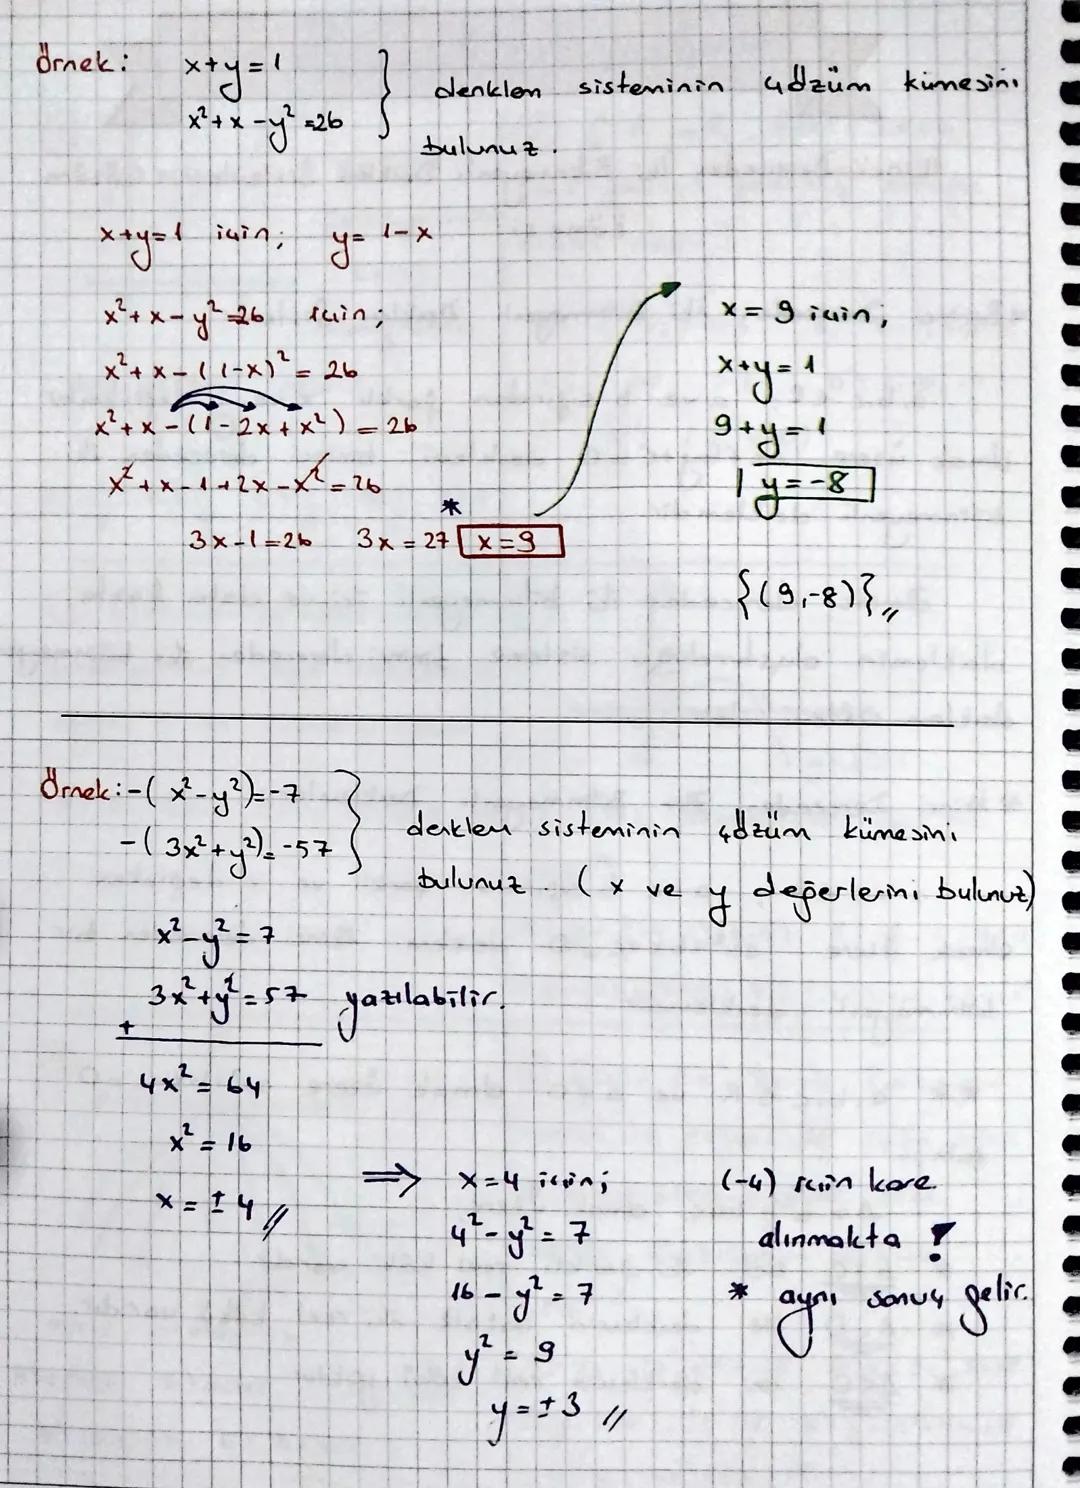 Örnek: x+y=1
x²+x-y²=26 } denklem sisteminin çözüm kümesini
bulunuz.
x+y=1 için; y=1-x
x²+x-y²=26 için;
x²+x-(1-x)²=26
x²+x-(1-2x+x²)=26
x²+x-1+2x-x²=26
3x-1=26 3x=27 * x=9
x=9 için;
x+y=1
9+y=1
y=-8
{(9,-8)}
Örnek: -(x²-y²)=-7
-(3x²+y²)=-57 } denklem sisteminin çözüm kümesini
bulunuz. (x ve y değerlerini bulunuz)
x²-y²=7
3x²+y²=57 yazılabilir.
+
4x²=64
x²=16
x=±4
⇒ x=4 için;
4²-y²=7
16-y²=7
y²=9
y=±3
(-4) için kare
alınmakta !
* aynı sonuç gelir.